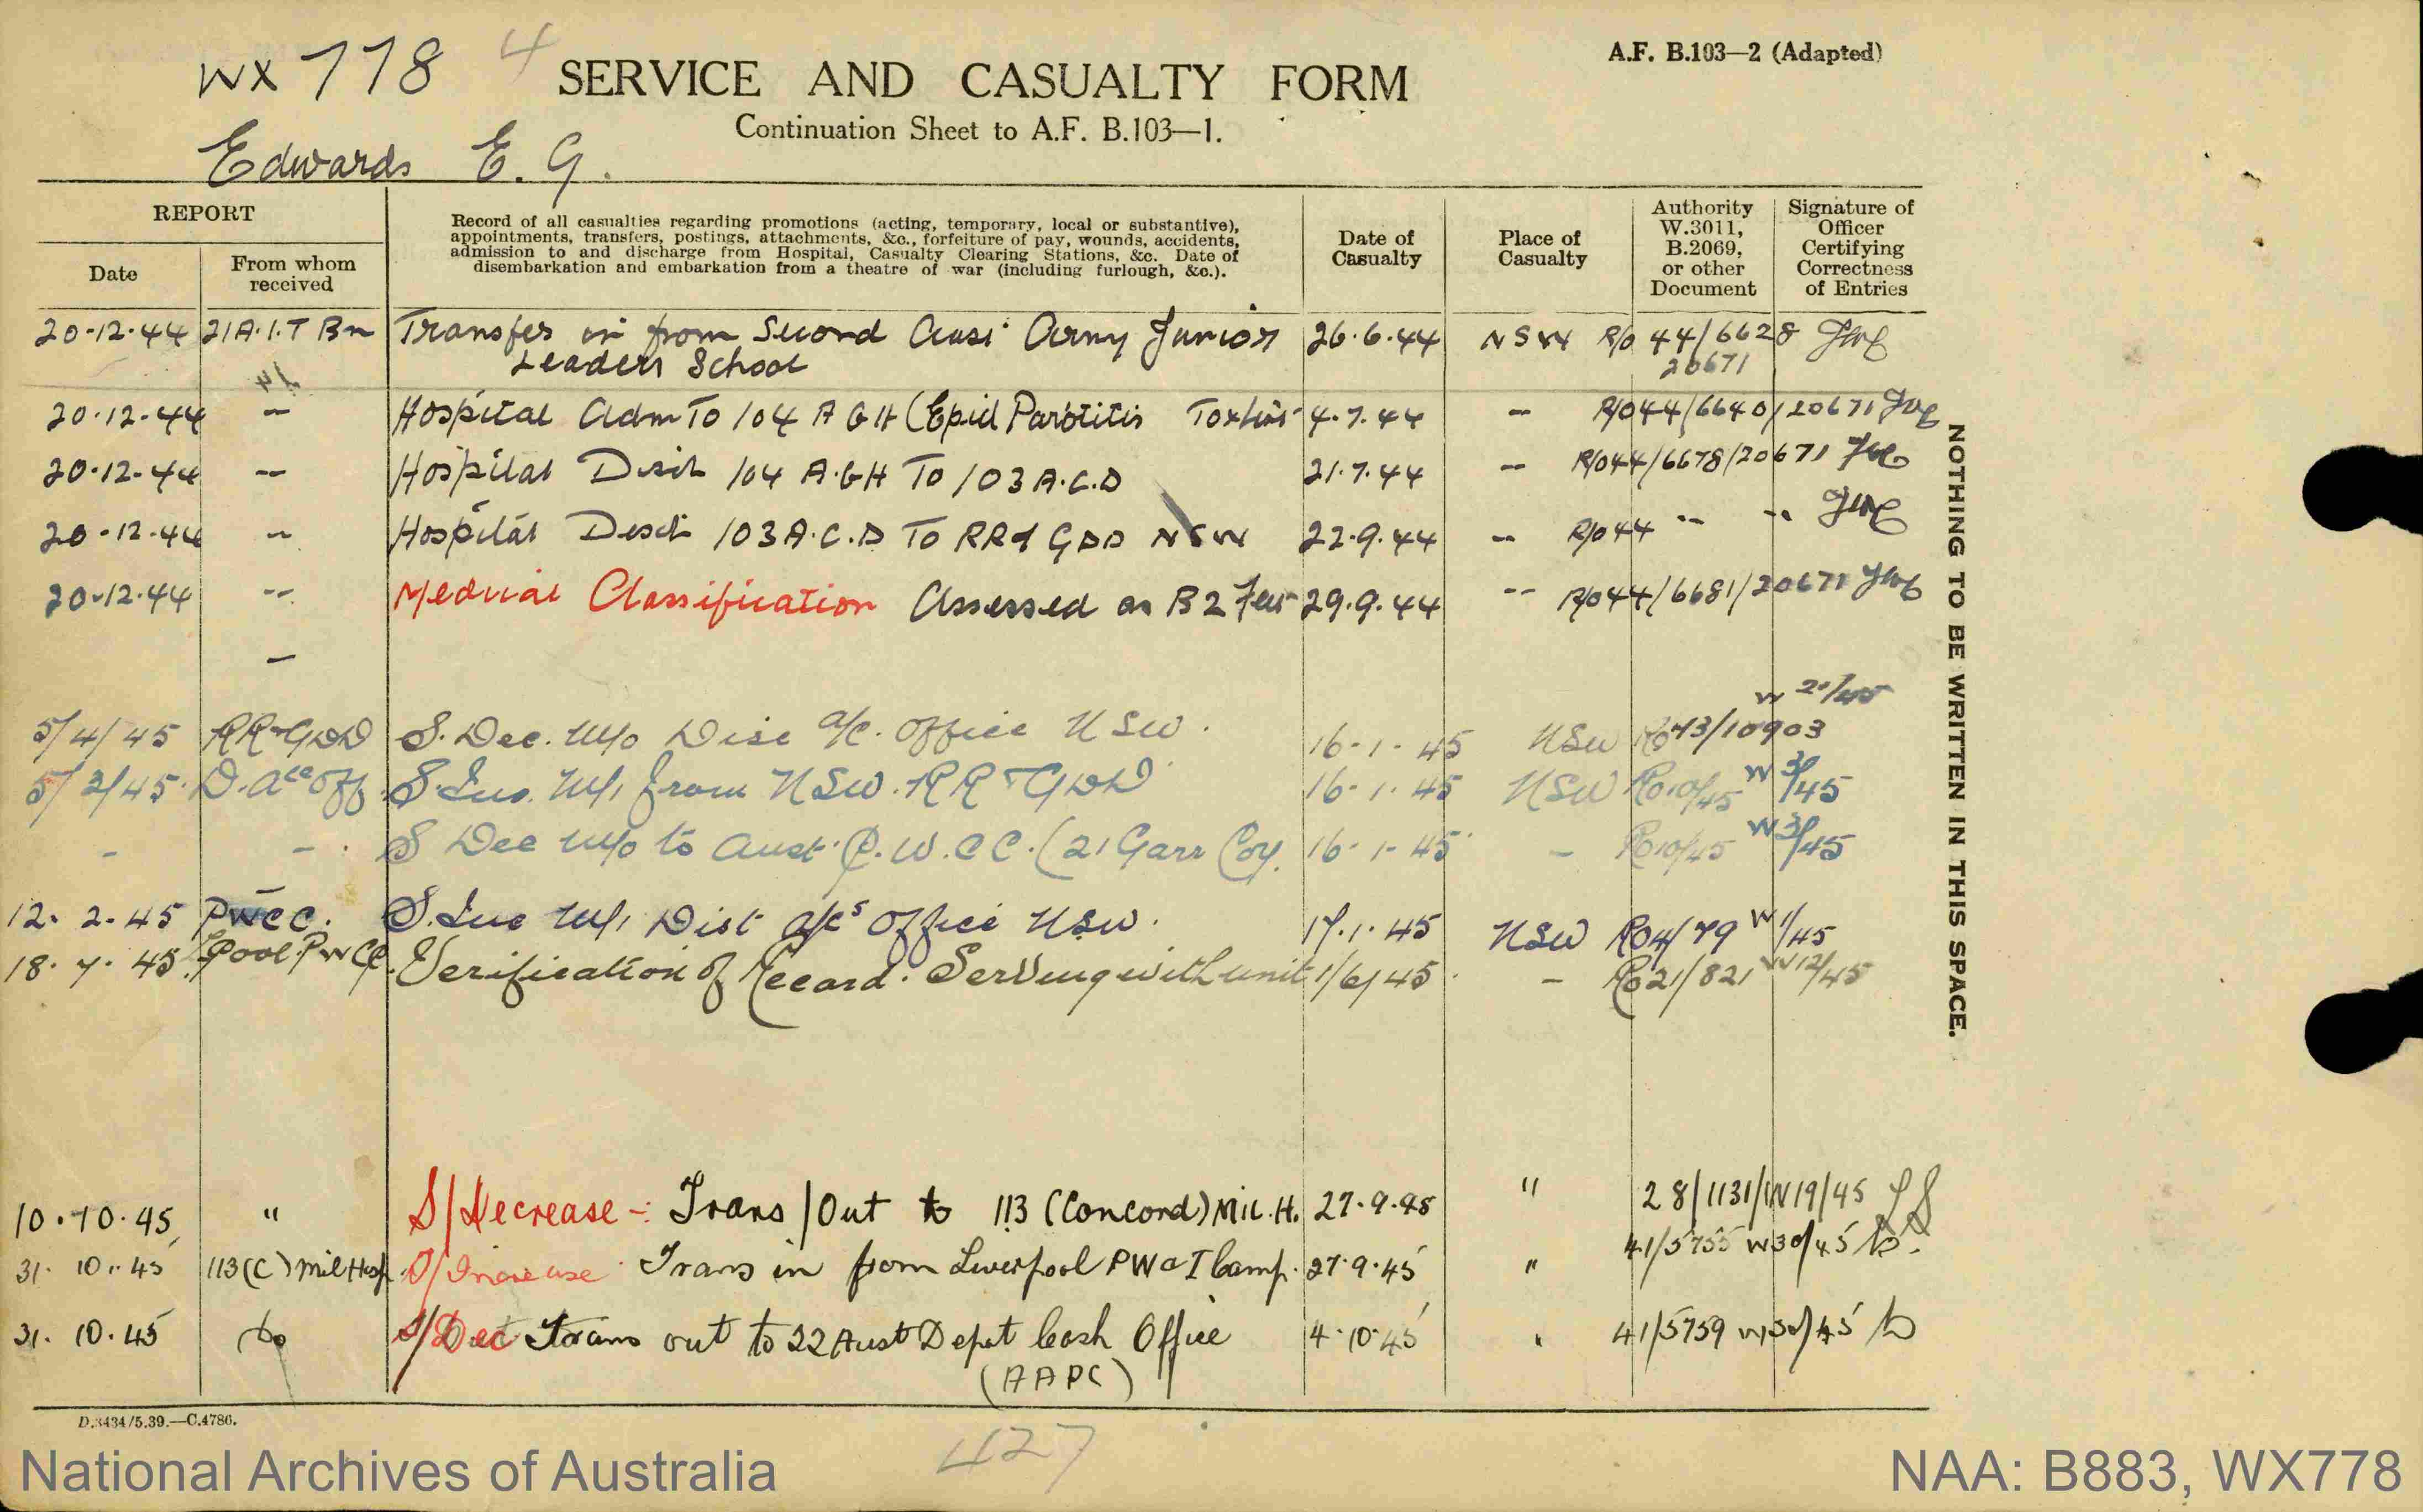 WX 778 4
SERVICE AND CASUALTY FORM
A.F. B.103—2 (Adapted)
Continuation Sheet to A.F. B.103—1.
Edwards E. G.
REPORT
Date
From whom received
Record of all casualties regarding promotions (acting, temporary, local or substantive),
appointments, transfers, postings, attachments, &c., forfeiture of pay, wounds, accidents,
admission to and discharge from Hospital, Casualty Clearing Stations, &c. Date of
disembarkation and embarkation from a theatre of war (including furlough, &c.).
Date of Casualty
Place of Casualty
Authority W.3011, B.2069, or other Document
Signature of Officer Certifying Correctness of Entries
20-12-44 21 A.I.T Bn Transfer in from Second Aust Army Junior 26.6.44 NSW R/o 44/6628
14 Leaders School 20671
20-12-44 — Hospital Adm To 104 A G H (Epid Parotitis 4.7.44 — R/o44/6640/20671
20-12-44 — Hospital Disch 104 A.G.H To 103 A.C.D 21.7.44 — R/o44/6678/20671
20-12-44 — Hospital Disch 103 A.C.D To RR & GDD NSW 22.9.44 — R/o44 -- --
20-12-44 -- Medical Classification Assessed as B2 29.9.44 -- R/o44/6681/20671
—
W 20/45
5/4/45 RR & GDD S. Dec. M/o Disc a/c. Office NSW. 16-1-45 NSW Ro 43/10903
5/3/45. D. Acc Off. S. Inc. M/i from NSW. RR & GDD 16-1-45 NSW Ro10/45 W 3/45
- - S Dec M/o to Aust. P.W.C C. (21 Garr Coy. 16-1-45 - Ro10/45 W3/45
12. 2. 45 PWCC. S. Inc M/i Dist a/cs Office NSW. 17.1.45 NSW Ro4/79 W 1/45
18. 7. 45 Lpool. PWCC. Verification of Record. Serving with unit 1/6/45. - Ro21/821 W12/45
10.10.45 " S/Decrease -: Trans/Out to 113 (Concord) Mil. H. 27.9.45 " 28/1131/W19/45
31. 10. 45 113(C) Mil Hosp. S/Increase Trans in from Liverpool PW & I Camp. 27.9.45 " 41/5755 W30/45
31. 10. 45 do S/Dec Trans out to 22 Aust Depot Cash Office 4.10.45 " 41/5759 W30/45
(AAPC)
NOTHING TO BE WRITTEN IN THIS SPACE.
D.3434/5.39.—C.4786.
427
National Archives of Australia
NAA: B883, WX778